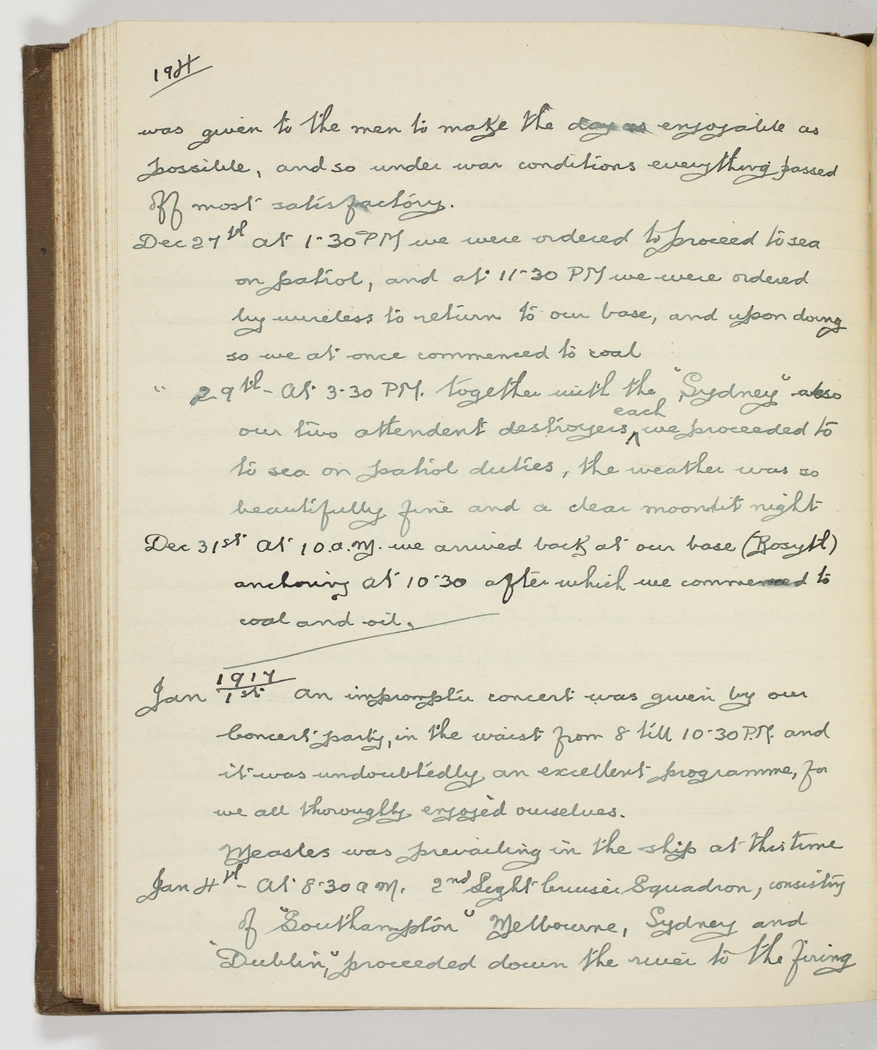 194
was given to the men to make the day as enjoyable as
possible, and so under war conditions everything passed
off most satisfactory.
Dec 27th At 1-30 PM we were ordered to proceed to sea
on patrol, and at 11-30 PM we were ordered
by wireless to return to our base, and upon doing
so we at once commenced to coal
" 29th - At 3-30 PM. together with the "Sydney" also
each
our two attendent destroyers, we proceeded to
to sea on patrol duties, the weather was so
beautifully fine and a clear moonlit night
Dec 31st At 10.a.m. we arrived back at our base (Rosyth)
anchoring at 10-30 after which we commenced to
coal and oil.
1917
Jan 1st An impromptu concert was given by our
Concert party, in the waist from 8 till 10-30 P.M. and
it was undoubtedly an excellent programme, for
we all thoroughly enjoyed ourselves.
Measles was prevailing in the ship at this time
Jan 4th - At 8-30 a m. 2nd Light Cruiser Squadron, consisting
of "Southampton" Melbourne, Sydney and
"Dublin," proceeded down the river to the firing